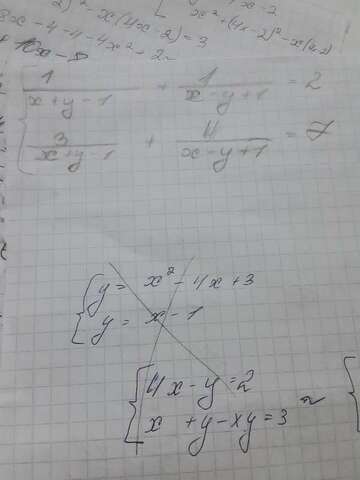 )² - x(4x-2) = 3
x² + (4x-2)² - x(4x-2)
1/(x+y-1) + 1/(x-y+1) = 2
3/(x+y-1) + 4/(x-y+1) = 7
y = x² - 4x + 3
y = x - 1
4x - y = 2
x + y - xy = 3 ~